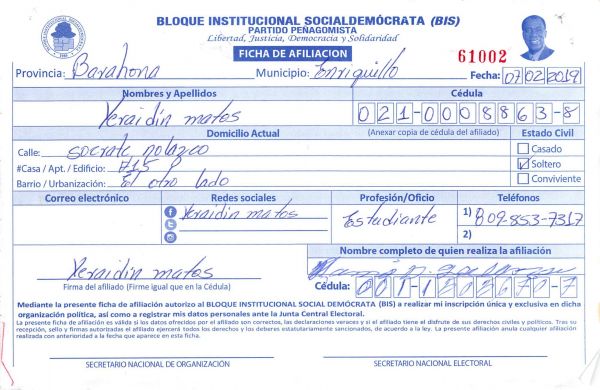 BLOQUE INSTITUCIONAL SOCIALDEMÓCRATA (BIS)
PARTIDO PEÑAGOMISTA
Libertad, Justicia, Democracia y Solidaridad
FICHA DE AFILIACION
61002
Provincia: Barahona Municipio: Enriquillo Fecha: 07/02/2019
Nombres y Apellidos Cédula
Yeraidin matos 021-0008863-8
Domicilio Actual (Anexar copia de cédula del afiliado) Estado Civil
Calle: socrate nolazco Casado
#Casa / Apt. / Edificio: #15 Soltero
Barrio / Urbanización: El otro lado Conviviente
Correo electrónico Redes sociales Profesión/Oficio Teléfonos
Yeraidin matos Estudiante 1) 809-853-7317
2)
Nombre completo de quien realiza la afiliación
Yeraidin matos
Firma del afiliado (Firme igual que en la Cédula) Cédula: 001-1205670-7
Mediante la presente ficha de afiliación autorizo al BLOQUE INSTITUCIONAL SOCIAL DEMÓCRATA (BIS) a realizar mi inscripción única y exclusiva en dicha
organización política, así como a registrar mis datos personales ante la Junta Central Electoral.
La presente ficha de afiliación es válida si los datos ofrecidos por el afiliado son correctos, las declaraciones veraces y si el afiliado tiene el disfrute de sus derechos civiles y políticos. Tras su
recepción, sello y firmas autorizadas el afiliado ejercerá todos los derechos y los deberes estatutariamente sancionados, de acuerdo a la ley. La presente afiliación anula cualquier afiliación
realizada con anterioridad a la fecha que aparece en esta ficha.
SECRETARIO NACIONAL DE ORGANIZACIÓN SECRETARIO NACIONAL ELECTORAL